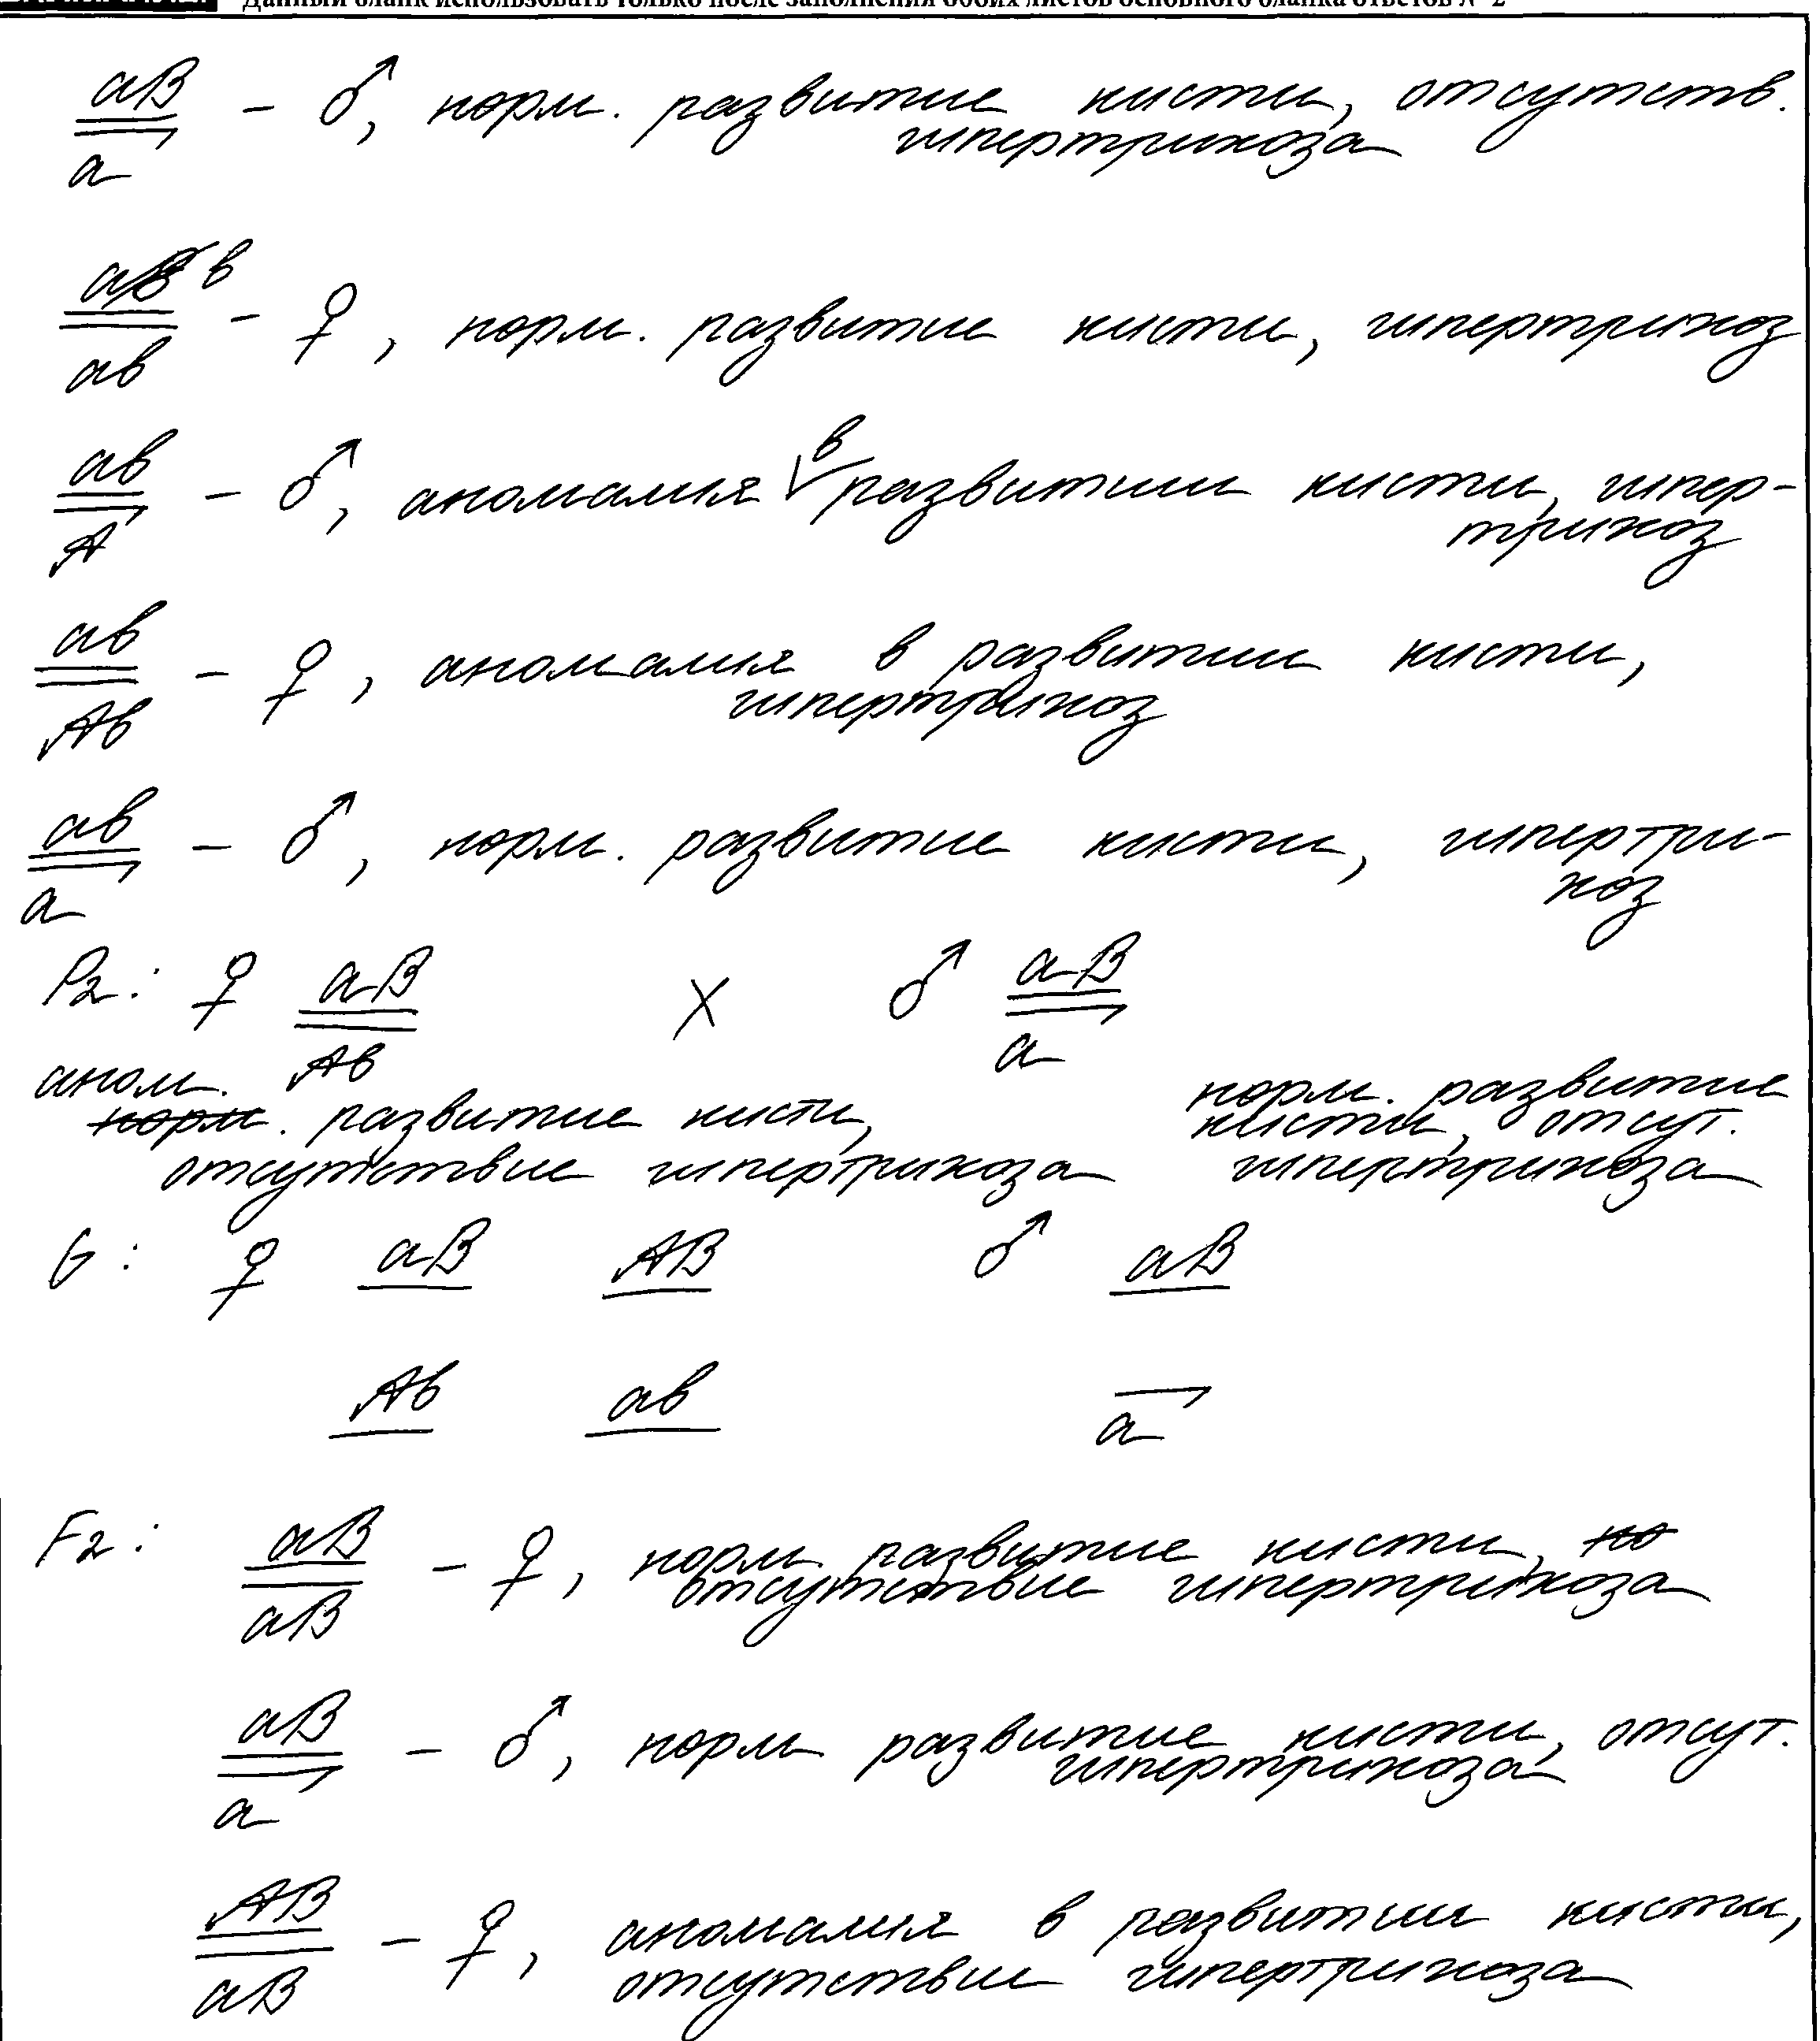 Данный бланк использовать только после заполнения обоих листов основного бланка ответов № 2
aB
a
– ♂, норм. развитие кисти, отсутств.
гипертрихоза
aB в
aв
– ♀, норм. развитие кисти, гипертрихоз
aв
A
в
– ♂, аномалия развитии кисти, гипер-
трихоз
aв
Aв
– ♀, аномалия в развитии кисти,
гипертрихоз
aв
a
– ♂, норм. развитие кисти, гипертри-
хоз
P2: ♀ aB X ♂ aB
Aв a
аном.
норм. развитие кисти,
отсутствие гипертрихоза
норм. развитие
кисти, отсут.
гипертрихоза
G: ♀ aB AB ♂ aB
Aв aв a
F2: aB
aB
– ♀, норм. развитие кисти, но
отсутствие гипертрихоза
aB
a
– ♂, норм развитие кисти, отсут.
гипертрихоза
AB
aB
– ♀, аномалия в развитии кисти,
отсутствие гипертрихоза